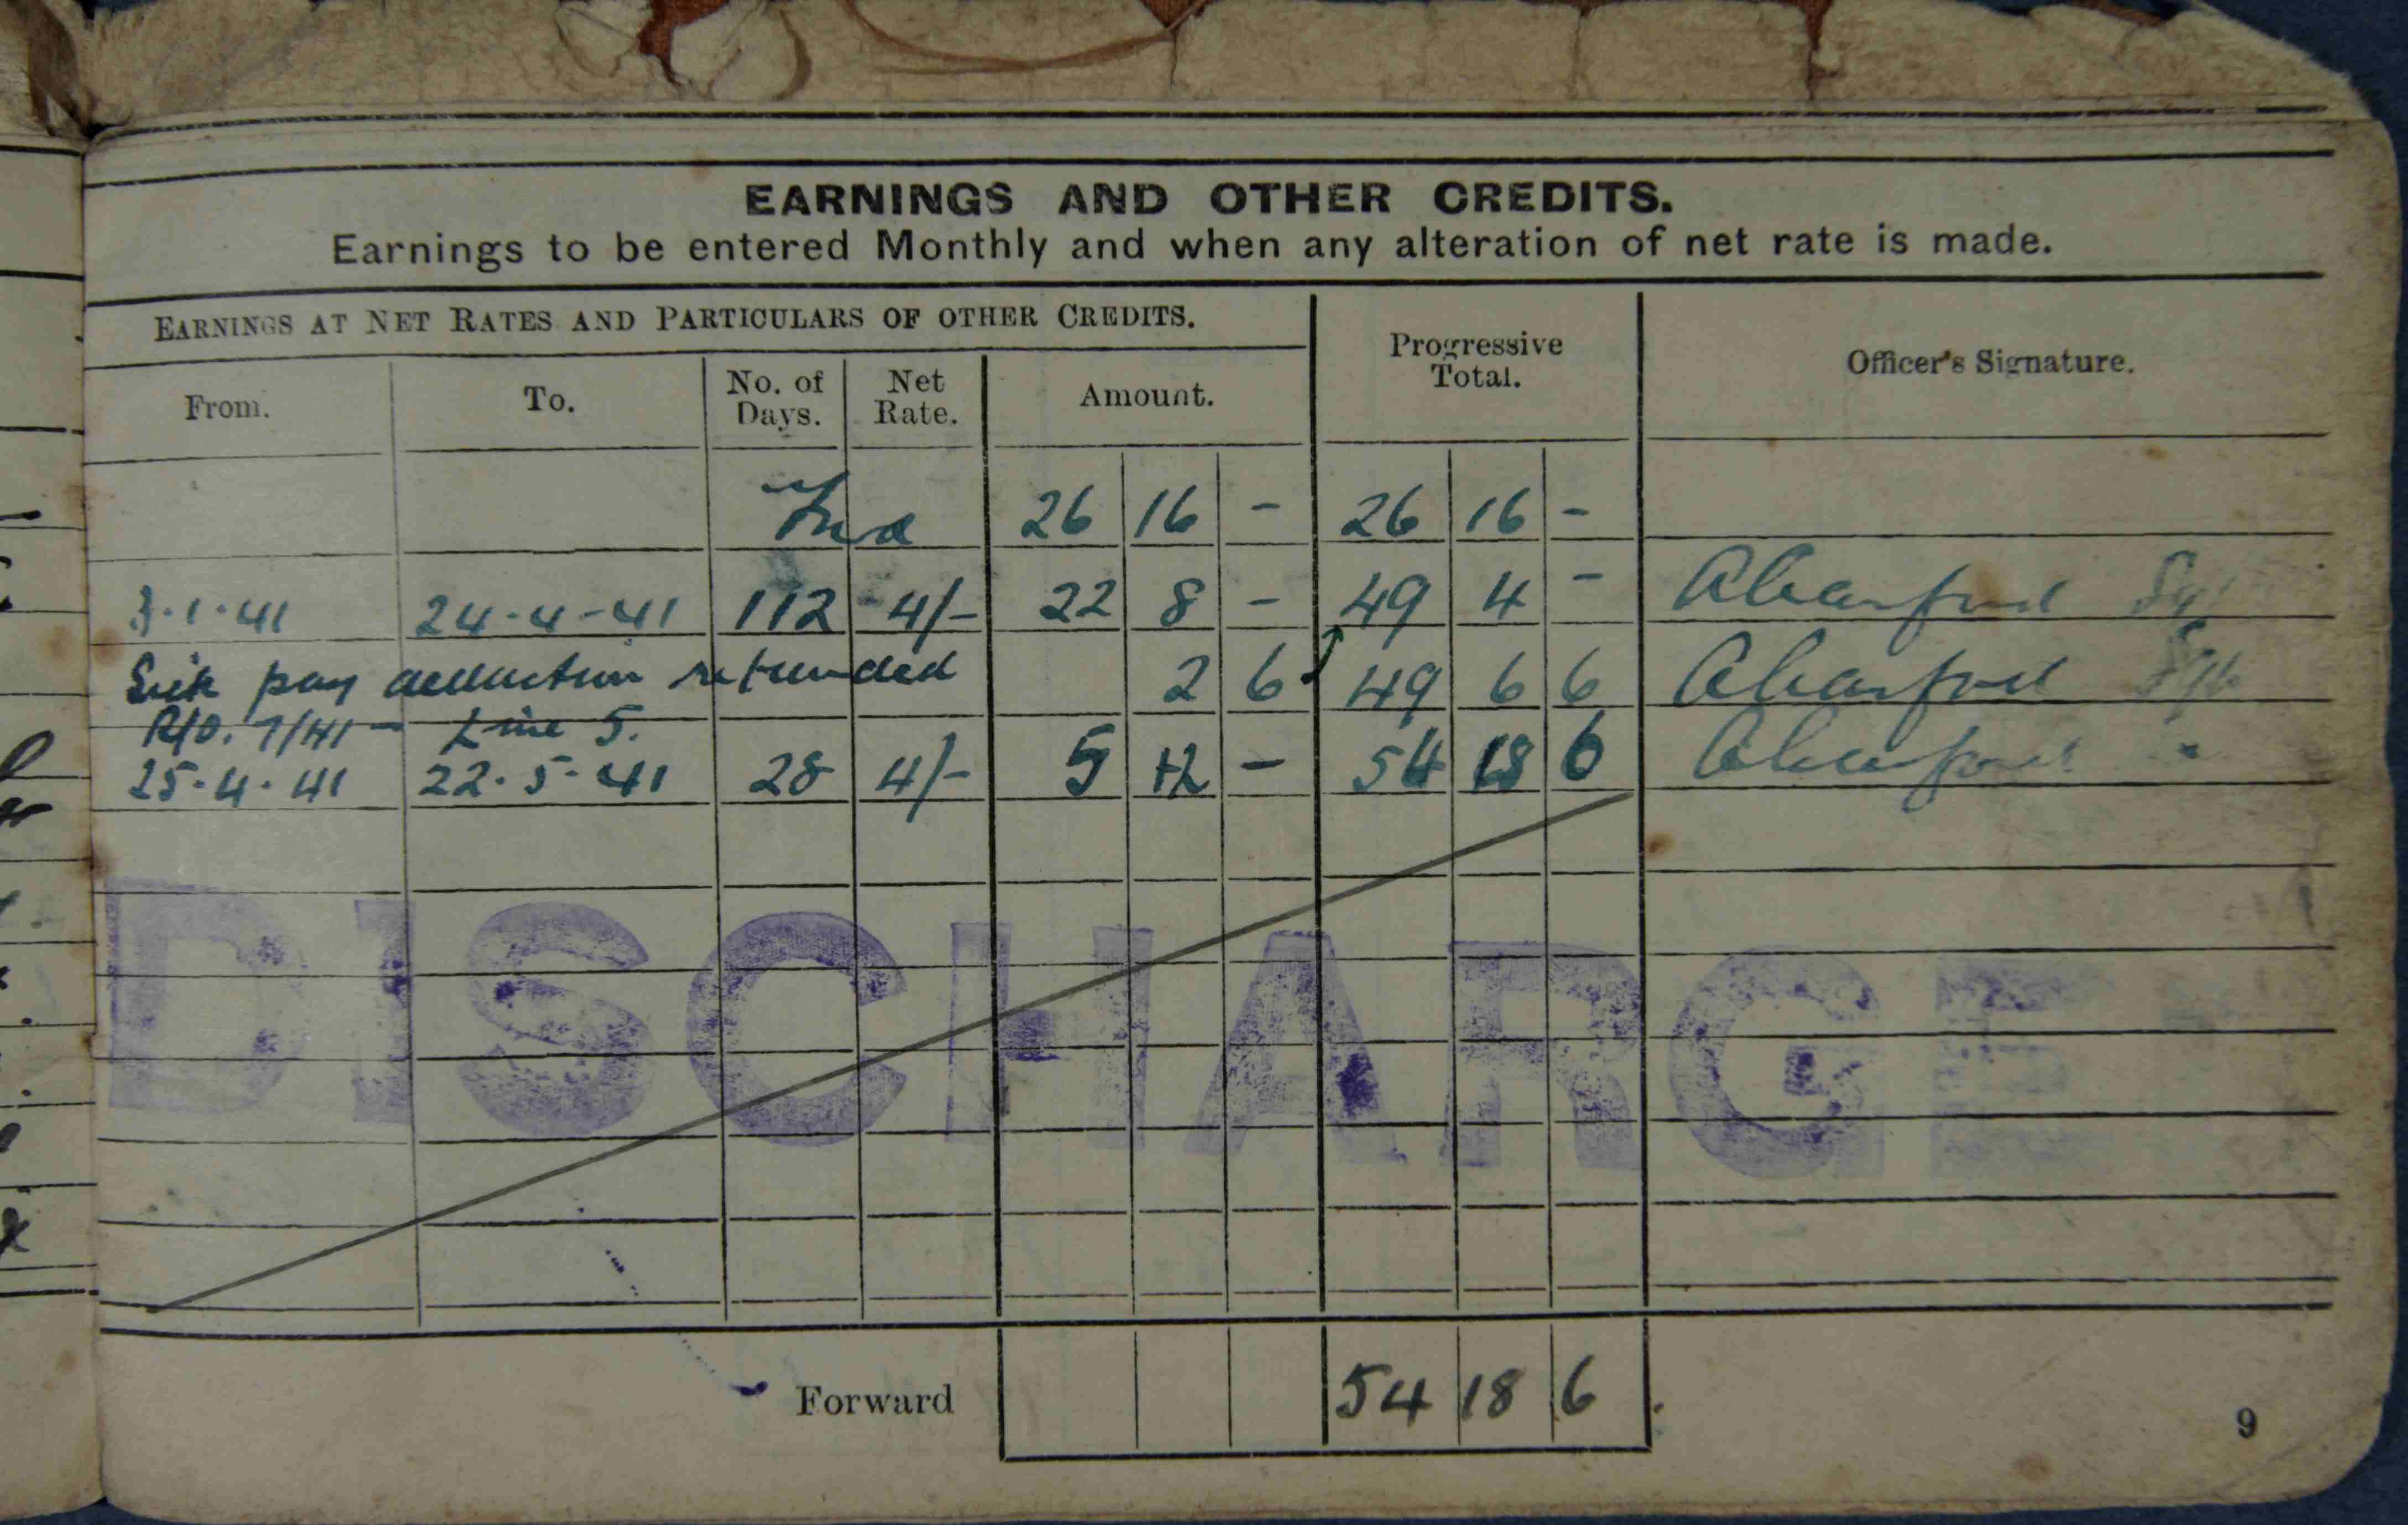 EARNINGS AND OTHER CREDITS.
Earnings to be entered Monthly and when any alteration of net rate is made.
EARNINGS AT NET RATES AND PARTICULARS OF OTHER CREDITS.
From. To. No. of Days. Net Rate. Amount. Progressive Total. Officer's Signature.
26 16 - 26 16 -
3.1.41 24-4-41 112 4/- 22 8 - 49 4 -
Sick pay deduction refunded 2 6 49 6 6
R/O. 7/41 - Line 5.
25.4.41 22.5.41 28 4/- 5 12 - 54 18 6
DISCHARGE
Forward 54 18 6
9